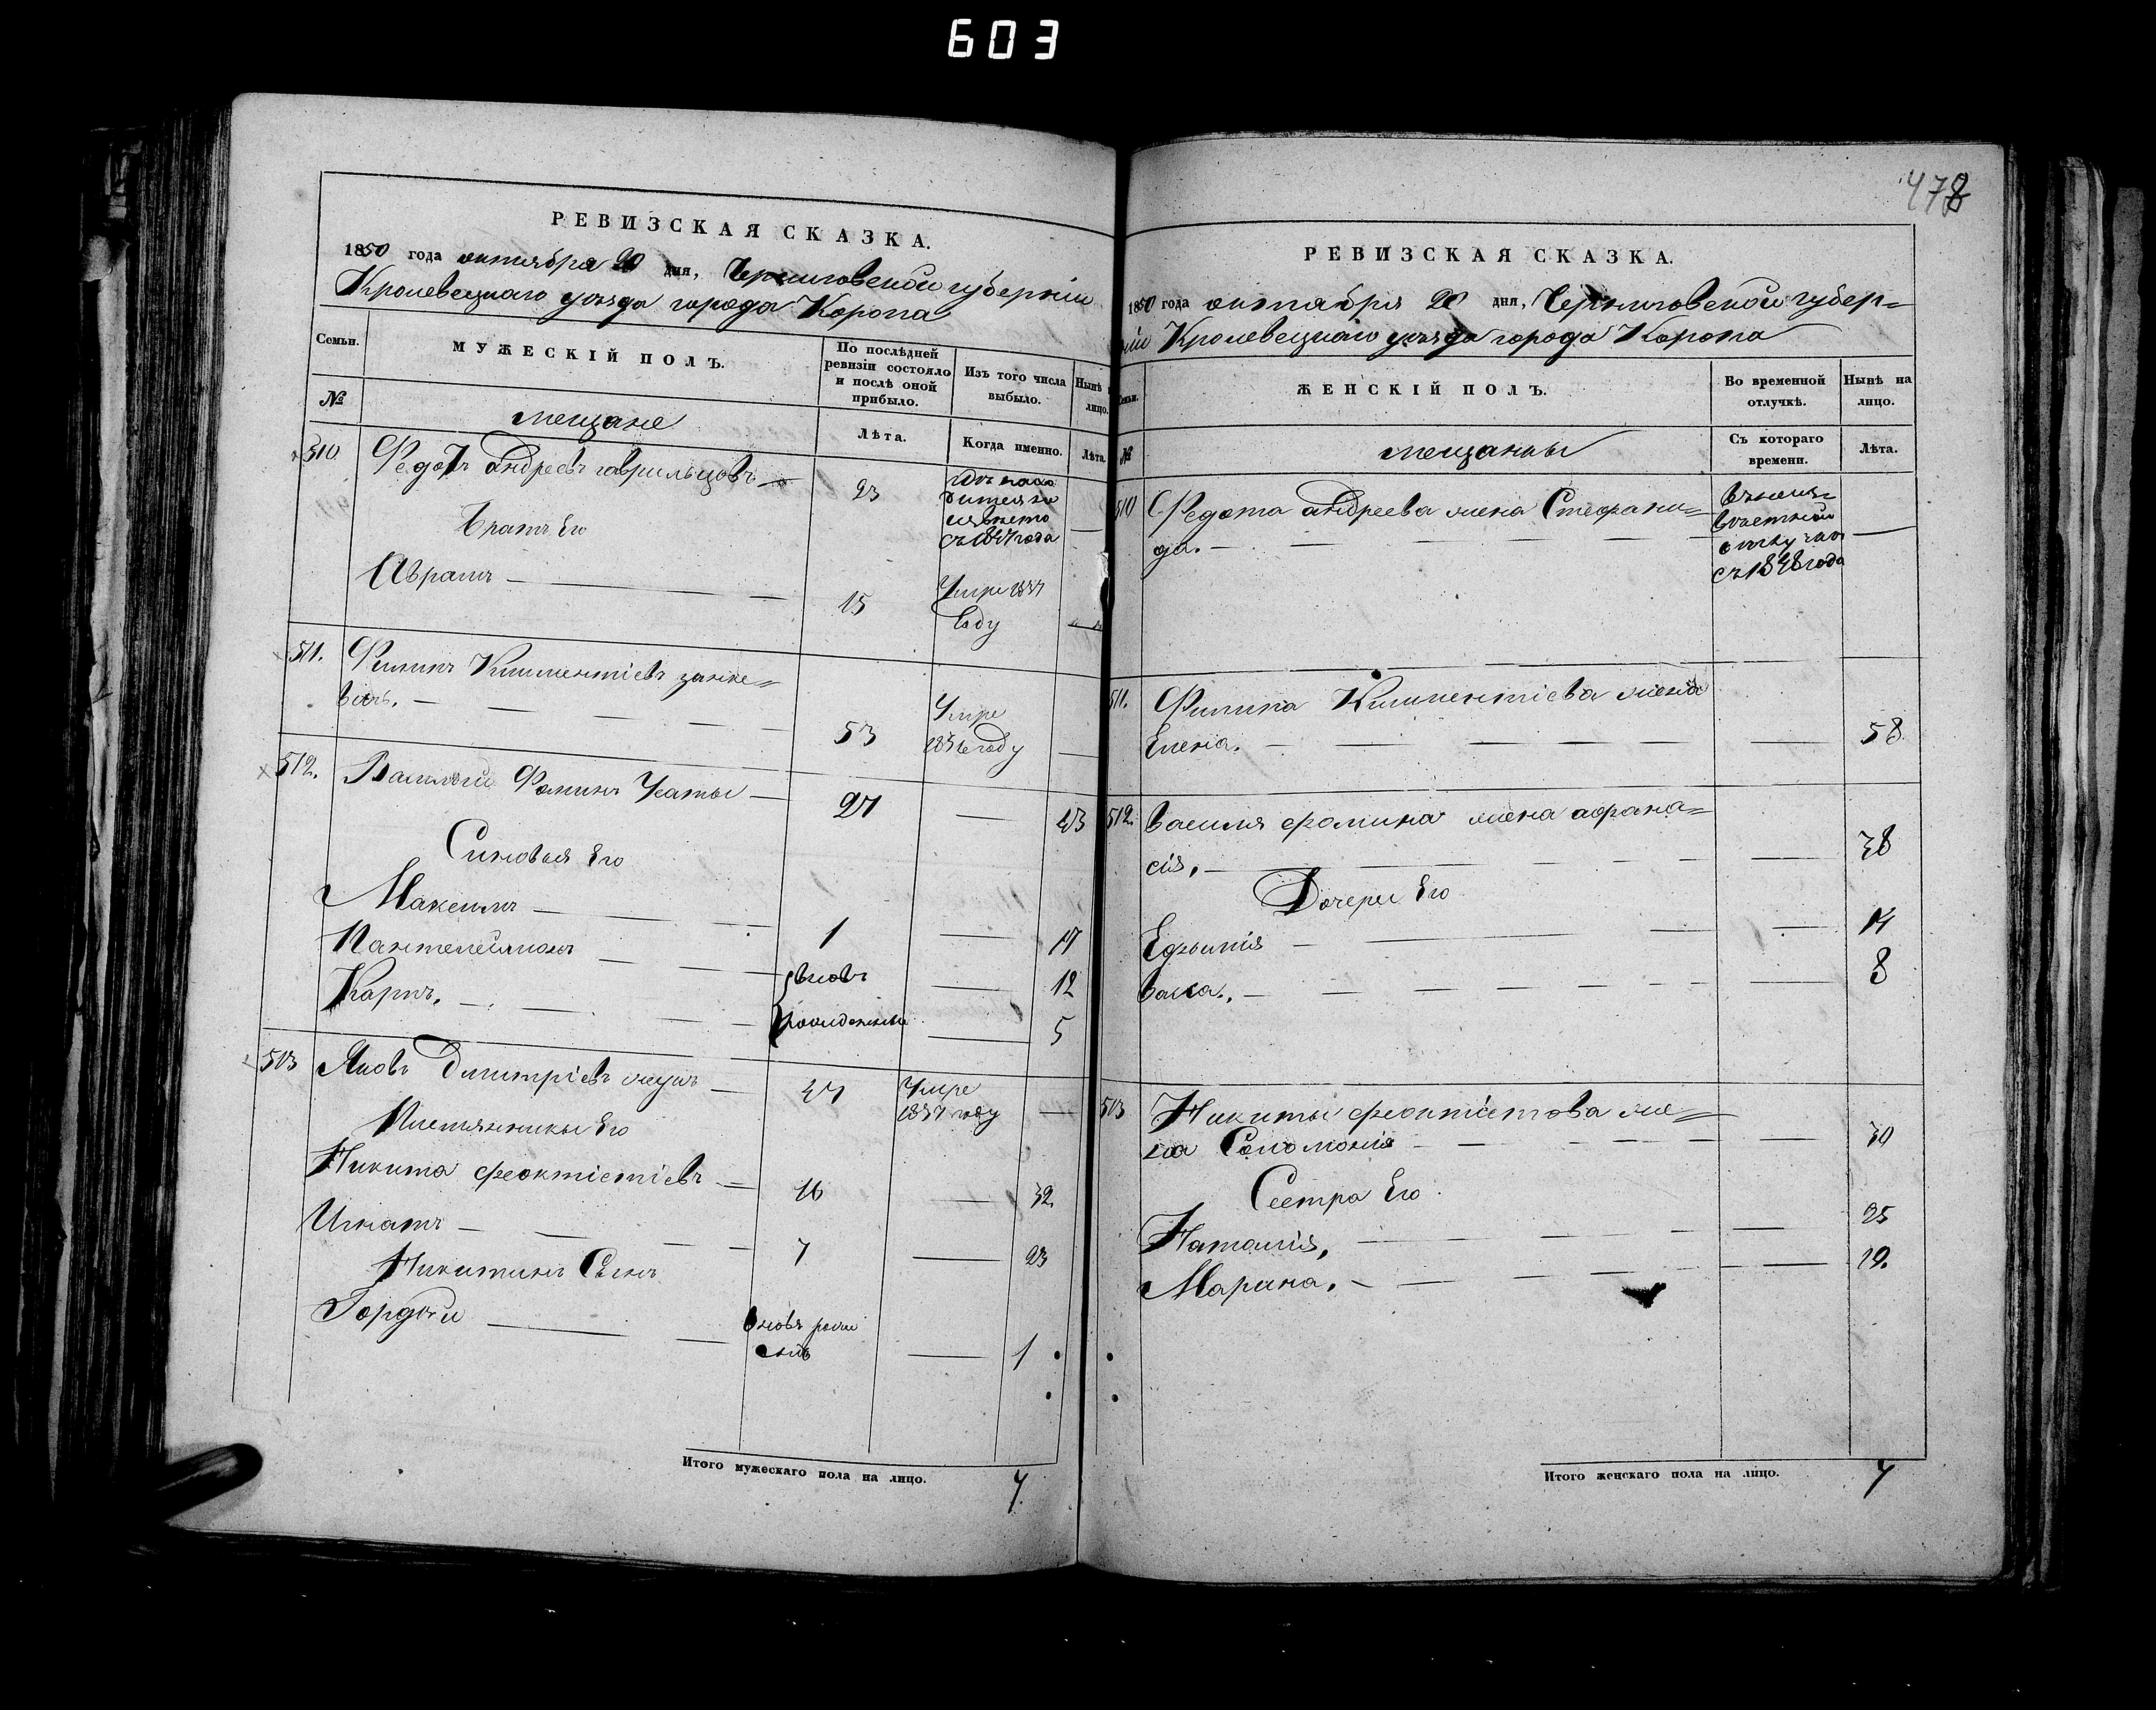 603
478
РЕВИЗСКАЯ СКАЗКА.
1850 года октября 20 дня, Черниговской губерніи
Кролевецкаго уезда города Коропа
Семьи.
МУЖЕСКІЙ ПОЛЪ.
По послѣдней ревизіи состояло и послѣ оной прибыло.
Изъ того числа выбыло.
Нынѣ на лицо.
№
мещане
Лѣта.
Когда именно.
Лѣта.
510 Федотъ андреевъ гаврильцовъ 23
съ 1847 года
Братъ Его
Аврамъ 15 Умре 1837
году
511. Филипъ Климентіевъ
53 Умре
году
512. Василій Фоминъ Усаты 27 43
Синовья Его
Максимъ 1 17
Пантелеймонъ вновь 12
Карпъ. рожденные 5
513 Яковъ Дмитріевъ 47 Умре
1837 году
Племянники Его
Никита феоктістіевъ 16 32
Игнатъ 7 23
Никитинъ Сынъ
Гордѣй вновь рож
1
Итого мужескаго пола на лицо. 7
РЕВИЗСКАЯ СКАЗКА.
1850 года октября 20 дня, Черниговской губер=
ніи Кролевецкаго уезда города Коропа
Семьи.
ЖЕНСКІЙ ПОЛЪ.
Во временной отлучкѣ.
Нынѣ на лицо.
№
мещанки
Съ котораго времени.
Лѣта.
510 Федота андреева жена Стефани=
да.
съ 1848 года
511. Филипа Климентіева жена
Елена. 58
512. василя фомина жена афана=
сія. 38
Дочери Его
Ефимія 14
васса. 8
513 Никиты феоктістова же=
на Соломонія 30
Сестра Его
Наталія, 25
Марина. 19.
Итого женскаго пола на лицо. 7